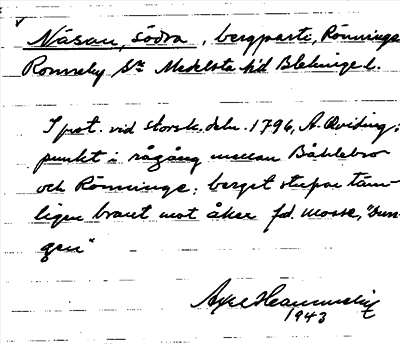 Näsan, södra, bergparti, Rönninge
Ronneby Sn Medelsta hd Blekinge l.
I prot. vid storsk.deln. 1796, A. Qviding;
punkt i rågång mellan Båhlebro
och Rönninge; berget stupar täm-
ligen brant mot åker fd. mosse,
gen"
Axel
1943